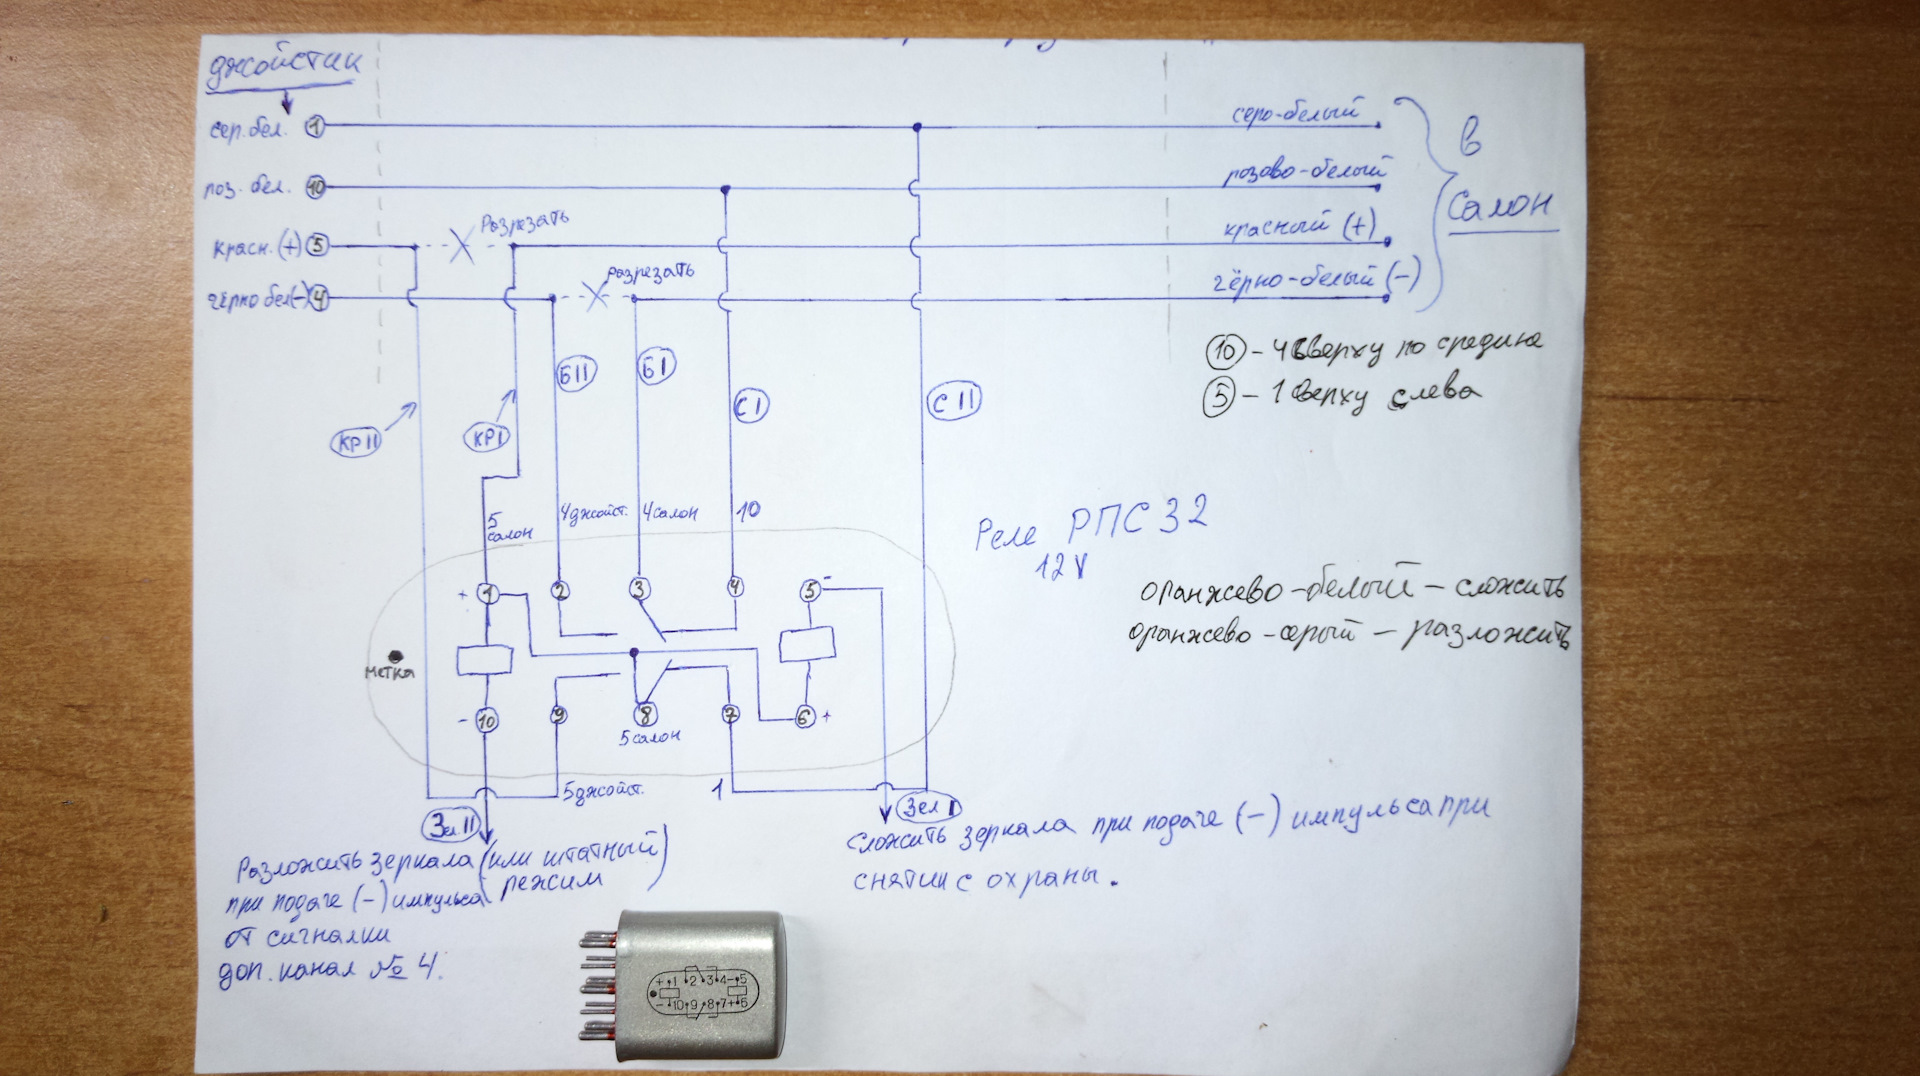 джойстик
сер.бел. 1
серо-белый
поз. бел. 10
розово-белый
красн. (+) 5
Разрезать
красный (+)
чёрно бел(-) 4
разрезать
чёрно-белый (-)
в
салон
10 - 4 сверху по средине
5 - 1 сверху слева
КР II
КР I
Б II
Б I
С I
С II
5
салон
4джойст.
4салон
10
Реле РПС 32
12 V
оранжево-белый - сложить
оранжево-серый - разложить
+ 1 2 3 4 5 -
метка
- 10 9 8 7 6 +
5салон
5джойст.
1
Зел. II
Зел I
Разложить зеркала (или штатный режим)
при подаче (-) импульса
от сигналки
доп. канал № 4.
Сложить зеркала при подаче (-) импульса при
снятии с охраны.
+ 1 2 3 4 - 5
- 10 9 8 7 + 6